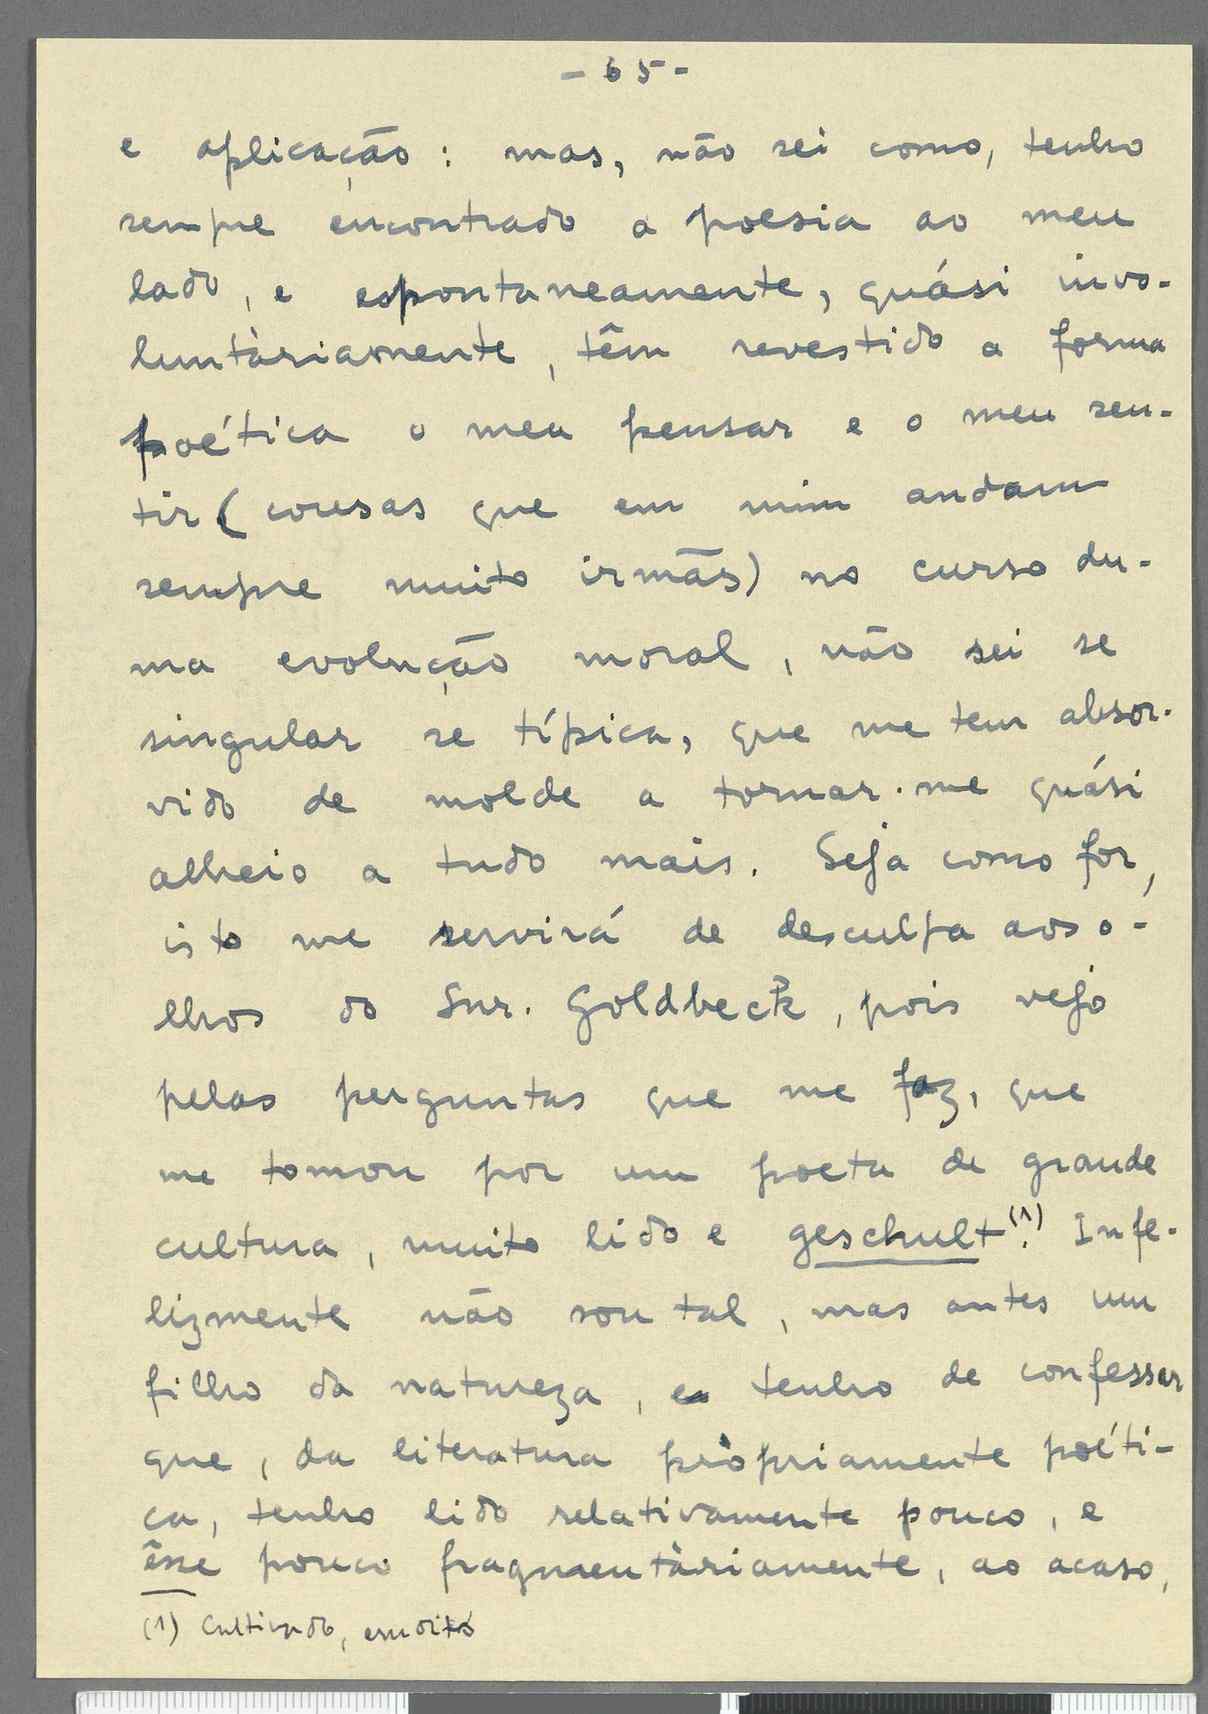 - 65 -
e aplicação: mas, não sei como, tenho
sempre encontrado a poesia ao meu
lado, e espontaneamente, quási invo-
luntàriamente, têm revestido a forma
poética o meu pensar e o meu sen-
tir (cousas que em mim andam
sempre muito irmãs) no curso du-
ma evolução moral, não sei se
singular se típica, que me tem absor-
vido de molde a tornar-me quási
alheio a tudo mais. Seja como for,
isto me servirá de desculpa aos o-
lhos do Snr. Goldbeck, pois vejo
pelas perguntas que me faz, que
me tomou por um poeta de grande
cultura, muito lido e geschult (1). Infe-
lizmente não sou tal, mas antes um
filho da natureza, e tenho de confessar
que, da literatura pròpriamente poéti-
ca, tenho lido relativamente pouco, e
êsse pouco fragmentàriamente, ao acaso,
(1) Cultivado, erudito